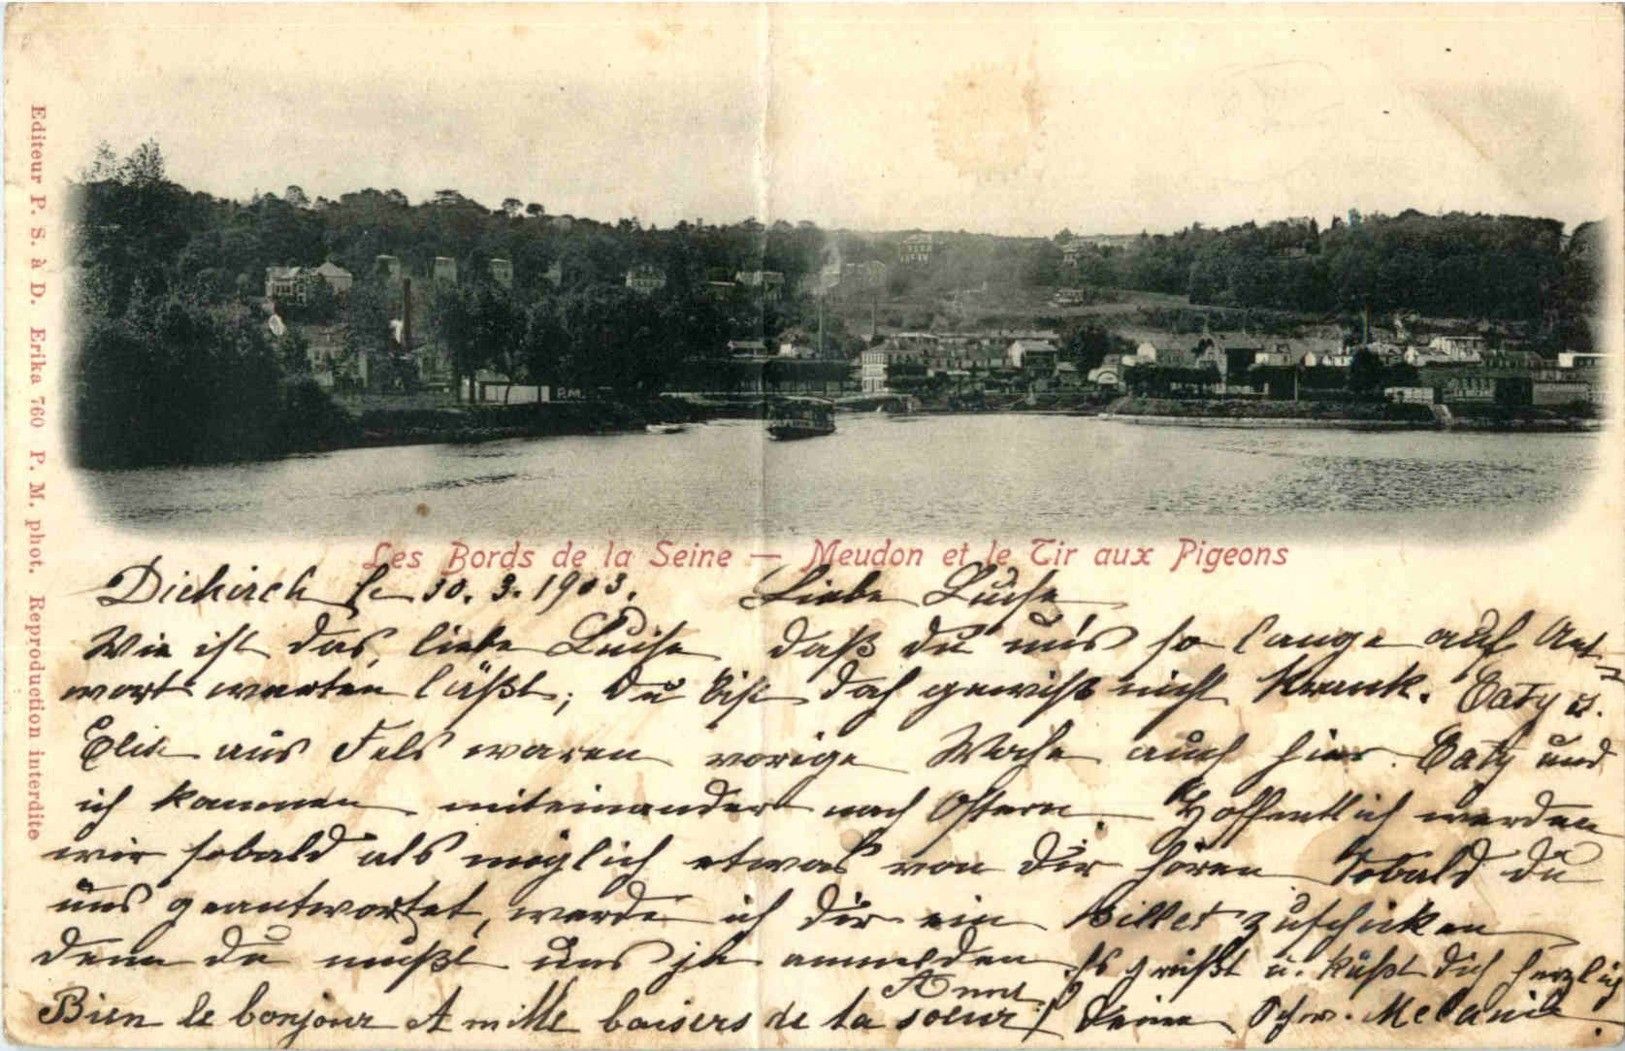 Editeur P. S. à D. Erika 760 P. M. phot. Reproduction interdite
P.M.
Les Bords de la Seine — Meudon et le Tir aux Pigeons
Diekirch le 30. 3. 1903. Liebe Luise
Wie ist das, liebe Luise daß du uns so lange auf Ant-
wort warten läßt; Du bist doch gewiß nicht krank. Caty u.
Elise aus Fels waren vorige Woche auch hier. Caty und
ich kommen miteinander nach Ostern. Hoffentlich werden
wir sobald als möglich etwas von Dir hören Sobald du
uns geantwortet, werde ich Dir ein Billet zuschicken
denn du mußt uns ja anmelden Es grüßt u. küßt Dich herzlich
Bien le bonjour et mille baisers de ta soeur Anna Deine Schw. Melanie.